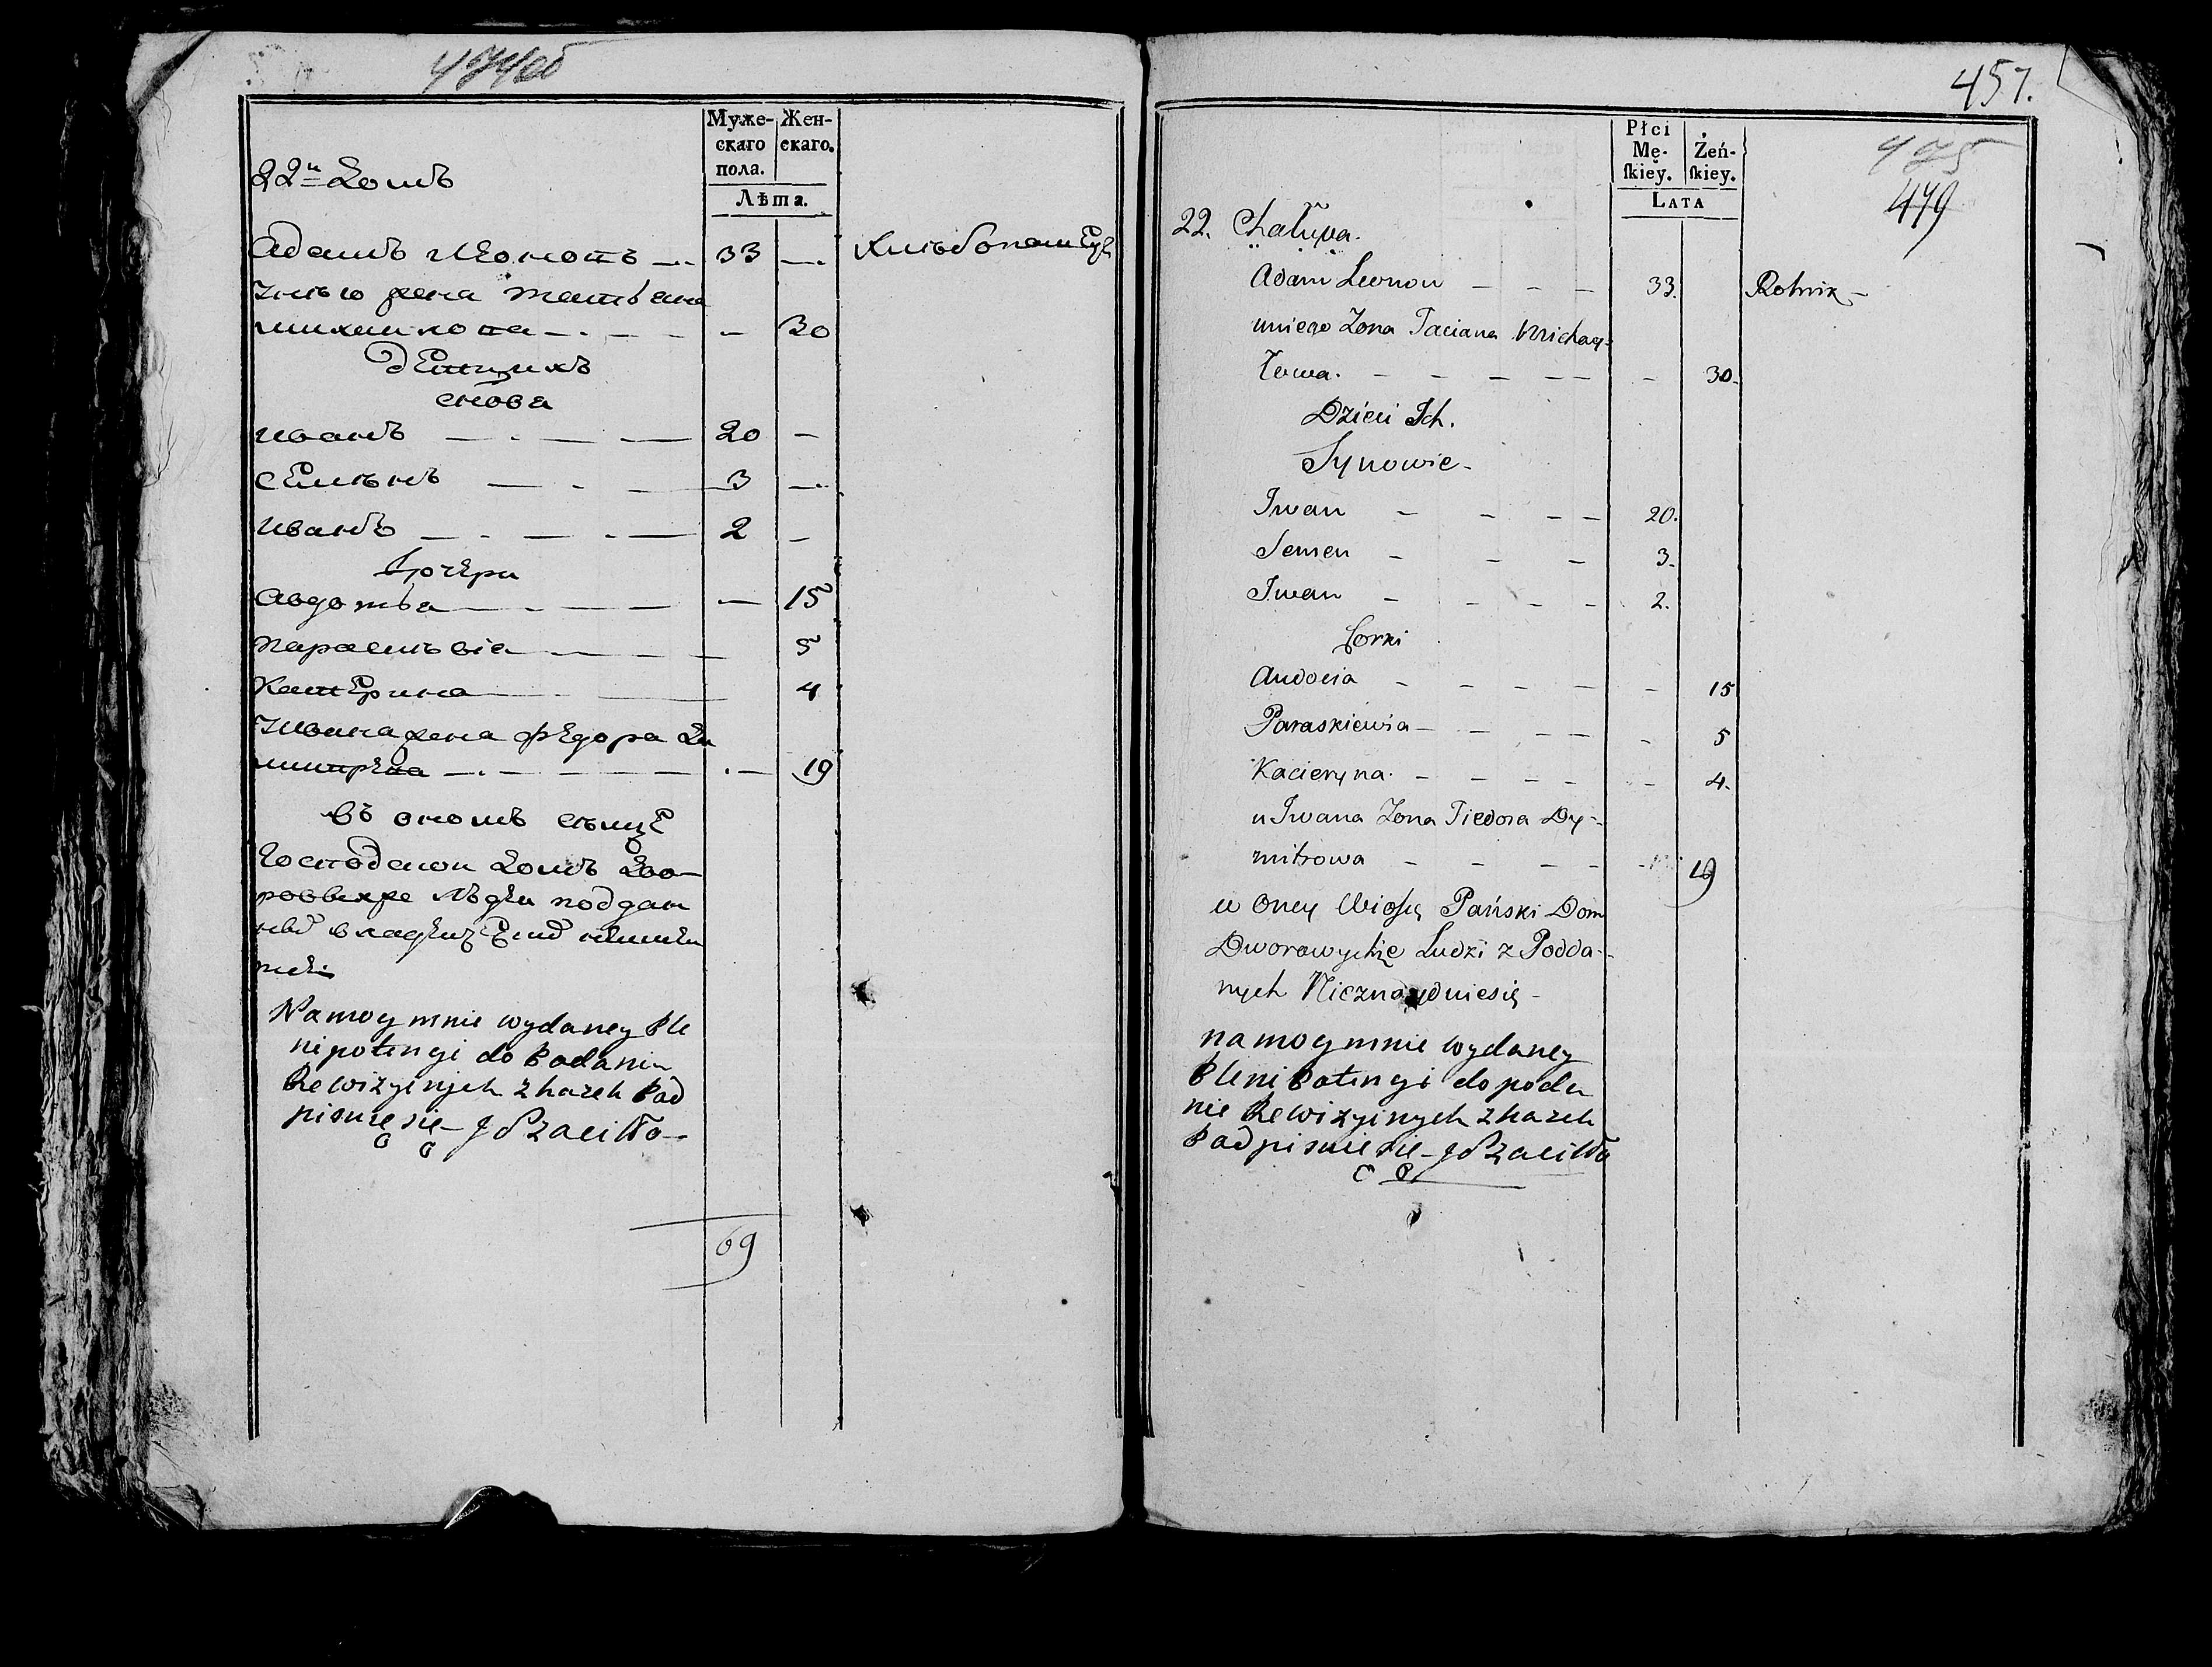 474об
Муже- Жен-
скаго скаго.
пола.
Лѣта.
22й Домъ
Адамъ Леоновъ — 33 — Хлѣбопашецъ
У него жена Татьяна
Михайлова — — 30
Дети ихъ
снова
Иванъ — 20 —
Семѣнъ — 3 —
Иванъ — 2 —
дочери
Авдотья — — 15
Параскѣвiя — 5
Катерина — 4
У Ивана жена Федора Ди
митрева — — 19
въ ономъ
Господскои домъ дво-
ровыхже людеи поддан
Namoy mnie wydaney Ple
nipotengi do Podania
Rewizyinych zkazek Pod
pisuie się J Szaciłło
69
457.
Płci Męſkiey. Żeńſkiey.
LATA
475
479
22. Chałupa.
Adam Leonow — — — 33. Rolnik —
uniego Zona Taciana Michay-
łowa. — — — — — — 30.
Dzieci Ich.
Synowie.
Iwan — — — — 20.
Semen — — — 3.
Iwan — — — — 2.
Corki
Audocia — — — — — 15
Paraskiewia — — — — — 5
Kacieryna. — — — — — 4.
u Iwana Zona Fiedora Dy-
mitrowa — — — — 19
w Oney Wiosce Pański Dom
Dworowychże Ludzi z Podda-
nych Nieznayduiesię —
na moy mnie wydaney
Pleni Potengi do poda
nie Rewizyinych zkazek
Podpisuie sie — J Szaciłło